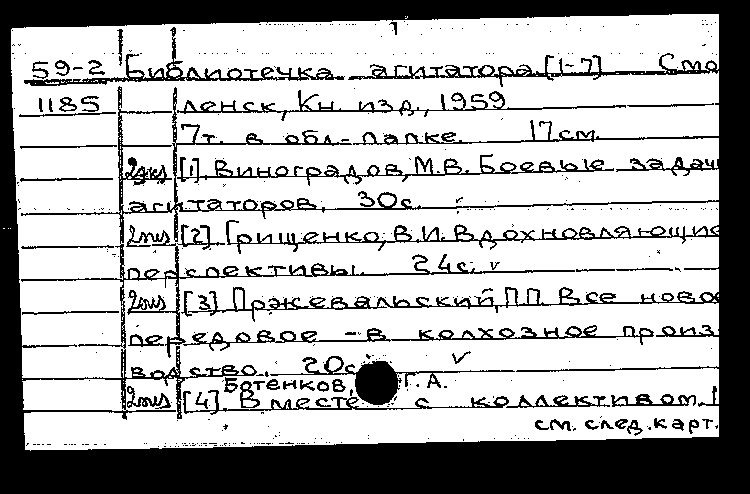 1
59-2 Библиотечка агитатора.[1-7] Смо
1185 ленск, Кн. изд., 1959
7т. в обл.-папке. 17см.
[1]. Виноградов, М.В. Боевые задачи
агитаторов. 30с.
[2]. Грищенко, В.И. Вдохновляющие
перспективы. 24с. v
[3]. Пржевальский, П.П. Все новое
передовое - в колхозное произ
водство. 20с. v
Ботенков, Г.А.
[4]. Вместе с коллективом.
см. след. карт.